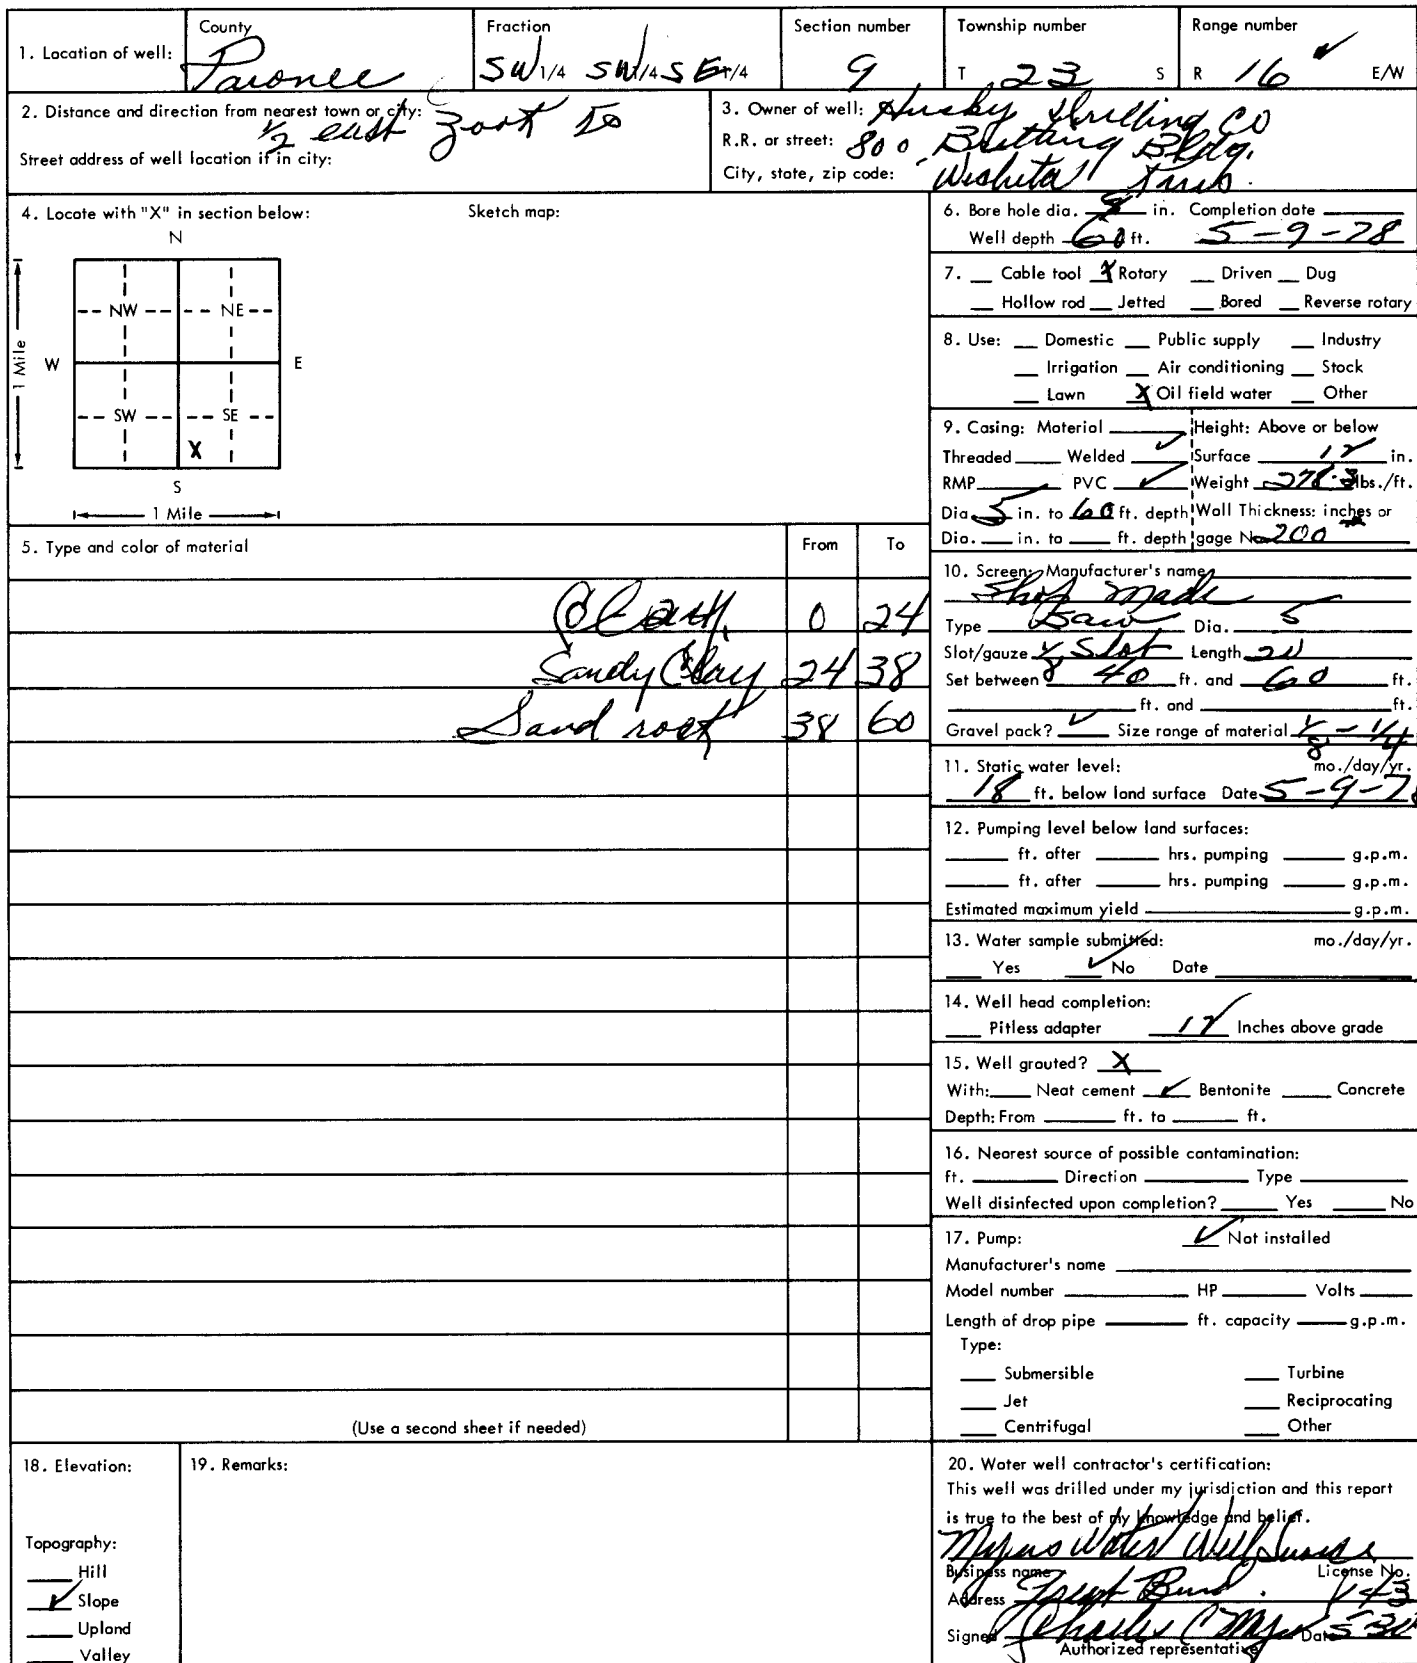 County
Fraction
Section number
Township number
Range number
1. Location of well:
SW 1/4 SW 1/4 SE 1/4
9
T 23 S
R 16 E/W
2. Distance and direction from nearest town or city:
1/2 east
Street address of well location if in city:
3. Owner of well: Husky Drilling Co
R.R. or street: 800 Bitting Bldg.
City, state, zip code: Wichita
4. Locate with "X" in section below:
Sketch map:
N
NW NE
W E
1 Mile
SW SE
X
S
1 Mile
5. Type and color of material
From To
0 24
Sandy Clay 24 38
Sand rock 38 60
(Use a second sheet if needed)
6. Bore hole dia. 9 in. Completion date
Well depth 60 ft. 5-9-78
7. Cable tool X Rotary Driven Dug
Hollow rod Jetted Bored Reverse rotary
8. Use: Domestic Public supply Industry
Irrigation Air conditioning Stock
Lawn X Oil field water Other
9. Casing: Material Height: Above or below
Threaded Welded ✓ Surface 12 in.
RMP PVC ✓ Weight lbs./ft.
Dia. 5 in. to 60 ft. depth Wall Thickness: inches or
Dia. in. to ft. depth gage No. 200
10. Screen: Manufacturer's name
Shop made
Type Saw Dia. 5
Slot/gauze 1/8 Slot Length 20
Set between 40 ft. and 60 ft.
ft. and ft.
Gravel pack? ✓ Size range of material 1/8 - 1/4
11. Static water level: mo./day/yr.
18 ft. below land surface Date 5-9-78
12. Pumping level below land surfaces:
ft. after hrs. pumping g.p.m.
ft. after hrs. pumping g.p.m.
Estimated maximum yield g.p.m.
13. Water sample submitted: mo./day/yr.
Yes ✓ No Date
14. Well head completion:
Pitless adapter 12 Inches above grade
15. Well grouted? X
With: Neat cement ✓ Bentonite Concrete
Depth: From ft. to ft.
16. Nearest source of possible contamination:
ft. Direction Type
Well disinfected upon completion? Yes No
17. Pump: ✓ Not installed
Manufacturer's name
Model number HP Volts
Length of drop pipe ft. capacity g.p.m.
Type:
Submersible Turbine
Jet Reciprocating
Centrifugal Other
18. Elevation:
Topography:
Hill
✓ Slope
Upland
Valley
19. Remarks:
20. Water well contractor's certification:
This well was drilled under my jurisdiction and this report
is true to the best of my knowledge and belief.
Myers Water Well Service
Business name License No.
Address Great Bend 143
Signed Charles C Myers Date
Authorized representative